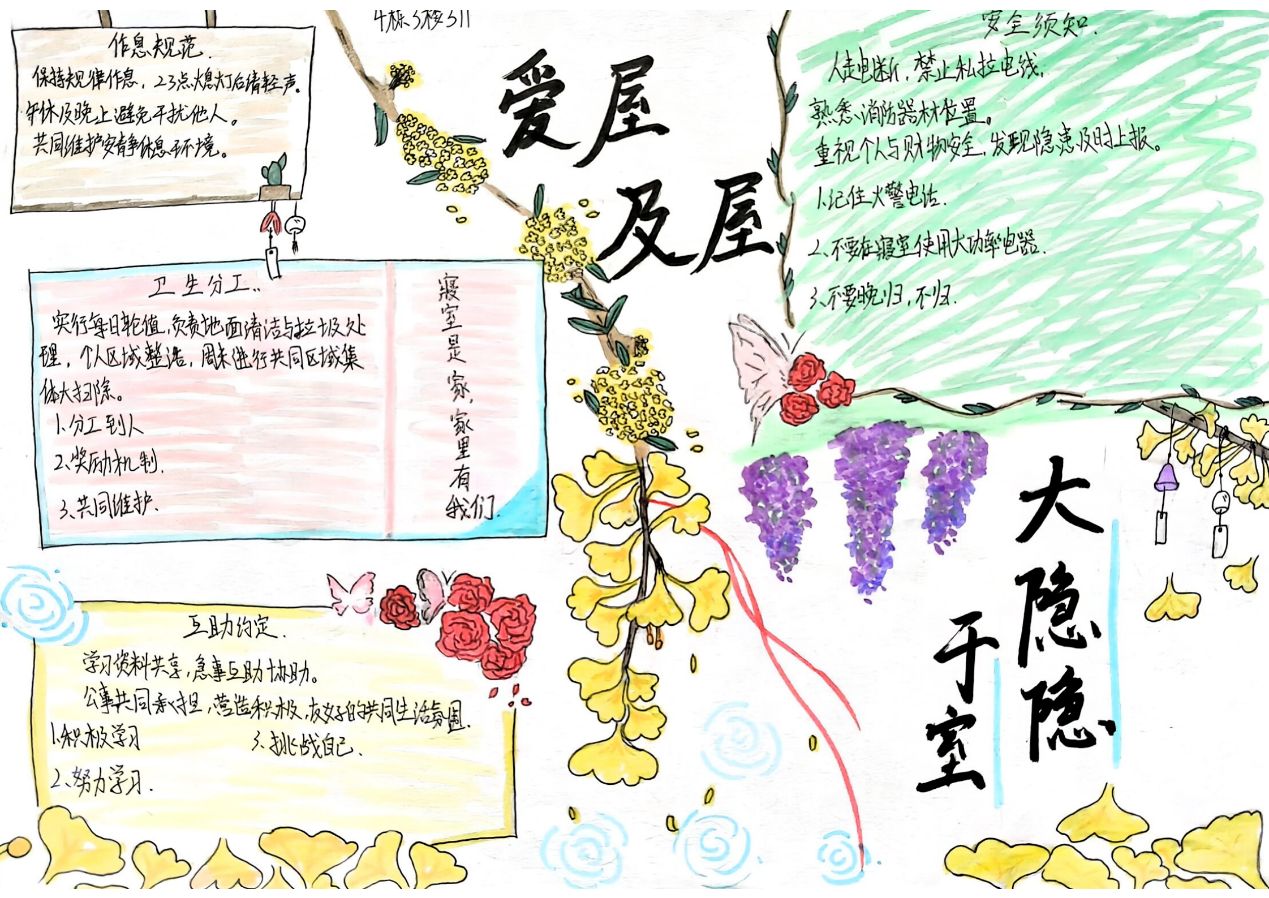 4栋3楼311
作息规范.
保持规律作息，23点熄灯后请轻声。
午休及晚上避免干扰他人。
共同维护安静休息环境。
爱屋
及屋
安全须知.
人走电断，禁止私拉电线，
熟悉消防器材位置。
重视个人与财物安全，发现隐患及时上报。
1.记住火警电话.
2.不要在寝室使用大功率电器.
3.不要晚归，不归.
卫生分工..
实行每日轮值，负责地面清洁与垃圾处
理，个人区域整洁，周末进行共同区域集
体大扫除。
1.分工到人
2.奖励机制.
3.共同维护.
寝室是家，家里有我们.
大隐隐
于室
互助约定.
学习资料共享，急事互助协助。
公事共同承担，营造积极，友好的共同生活氛围.
1.积极学习
3.挑战自己.
2.努力学习.